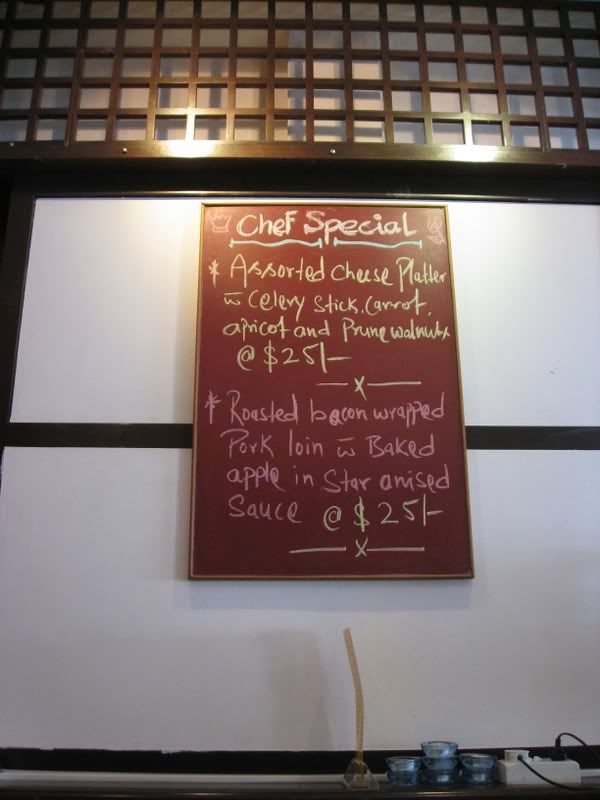 Chef Special
* Assorted Cheese Platter
w̄ Celery Stick, Carrot,
apricot and Prune walnuts
@ $25/-
—x—
* Roasted bacon wrapped
Pork loin w̄ Baked
apple in Star anised
Sauce @ $25/-
—x—